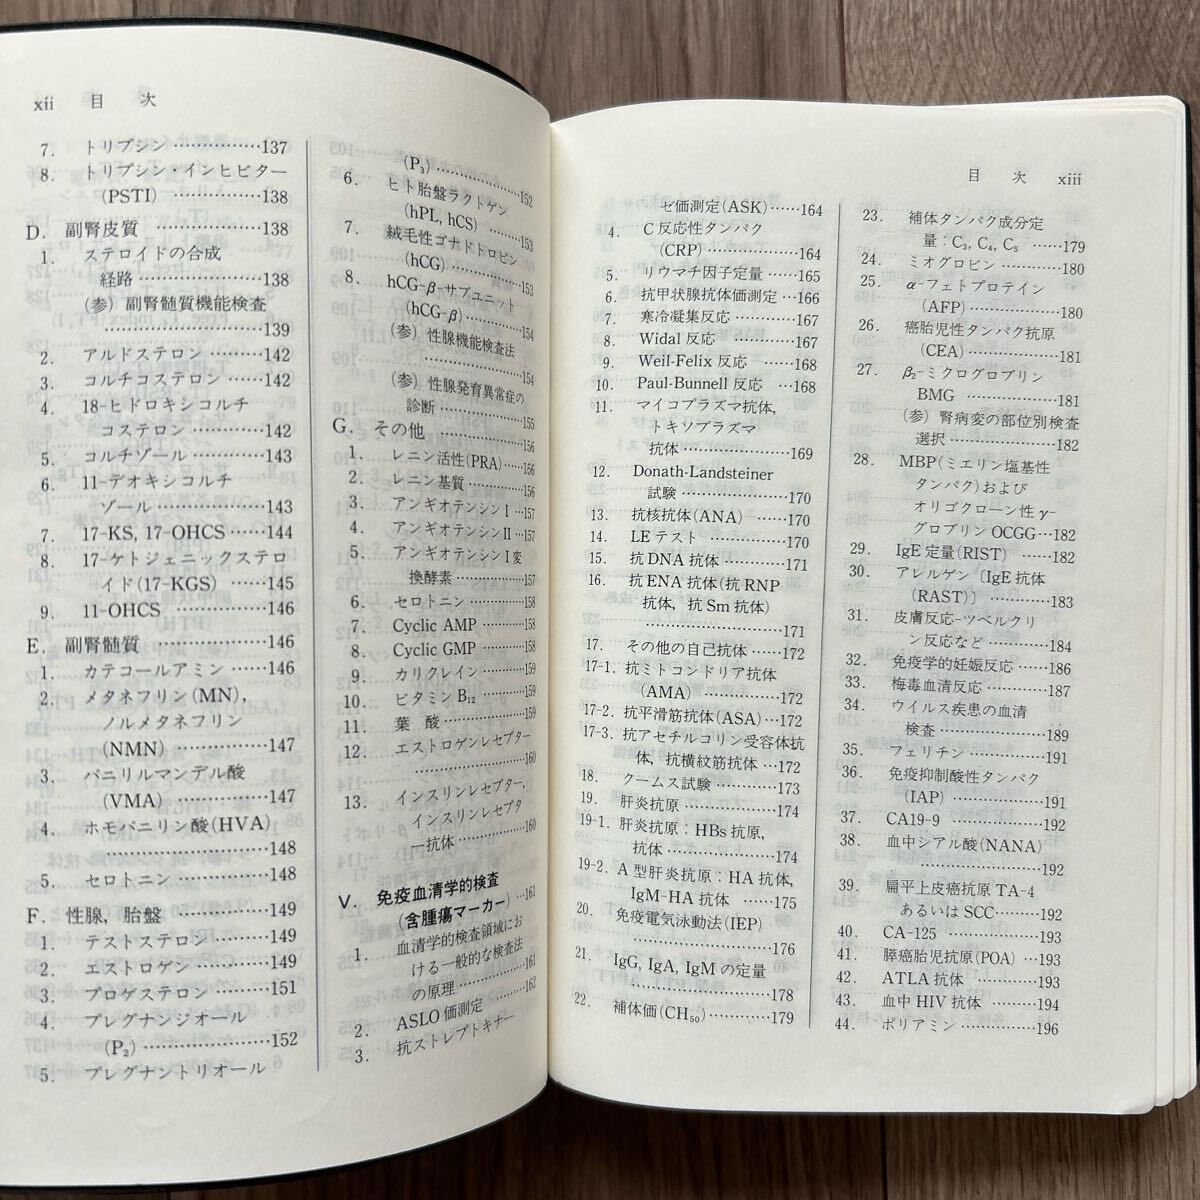 xii 目 次
7. トリプシン ……………137
8. トリプシン・インヒビター
(PSTI) ……………138
D. 副腎皮質 ……………138
1. ステロイドの合成
経路 ……………138
(参) 副腎髄質機能検査
……………139
2. アルドステロン ………142
3. コルチコステロン ……142
4. 18-ヒドロキシコルチ
コステロン …………142
5. コルチゾール …………143
6. 11-デオキシコルチ
ゾール ……………143
7. 17-KS, 17-OHCS ……144
8. 17-ケトジェニックステロ
イド(17-KGS) ………145
9. 11-OHCS ……………146
E. 副腎髄質 ……………146
1. カテコールアミン ……146
2. メタネフリン(MN),
ノルメタネフリン
(NMN) ……………147
3. バニリルマンデル酸
(VMA) ……………147
4. ホモバニリン酸(HVA)
……………148
5. セロトニン ……………148
F. 性腺, 胎盤 ……………149
1. テストステロン ………149
2. エストロゲン …………149
3. プロゲステロン ………151
4. プレグナンジオール
(P₂) ……………152
5. プレグナントリオール
(P₃) ……………152
6. ヒト胎盤ラクトゲン
(hPL, hCS) …………153
7. 絨毛性ゴナドトロピン
(hCG) ……………153
8. hCG-β-サブユニット
(hCG-β) ……………154
(参) 性腺機能検査法
……………154
(参) 性腺発育異常症の
診断 ……………155
G. その他 ……………156
1. レニン活性(PRA) ……156
2. レニン基質 …………156
3. アンギオテンシンⅠ …157
4. アンギオテンシンⅡ …157
5. アンギオテンシンⅠ変
換酵素 ……………157
6. セロトニン …………158
7. Cyclic AMP …………158
8. Cyclic GMP …………158
9. カリクレイン …………159
10. ビタミン B₁₂ …………159
11. 葉 酸 ……………159
12. エストロゲンレセプター
……………160
13. インスリンレセプター,
インスリンレセプタ
ー抗体 ……………160
V. 免疫血清学的検査
(含腫瘍マーカー) …161
1. 血清学的検査領域にお
ける一般的な検査法
の原理 ……………161
2. ASLO 価測定 …………162
3. 抗ストレプトキナー
目 次 xiii
ゼ価測定(ASK) ……164
4. C 反応性タンパク
(CRP) ……………164
5. リウマチ因子定量 ……165
6. 抗甲状腺抗体価測定 …166
7. 寒冷凝集反応 …………167
8. Widal 反応 …………167
9. Weil-Felix 反応 ……168
10. Paul-Bunnell 反応 …168
11. マイコプラズマ抗体,
トキソプラズマ
抗体 ……………169
12. Donath-Landsteiner
試験 ……………170
13. 抗核抗体(ANA) ……170
14. LE テスト ……………170
15. 抗 DNA 抗体 …………171
16. 抗 ENA 抗体(抗 RNP
抗体, 抗 Sm 抗体)
……………171
17. その他の自己抗体 ……172
17-1. 抗ミトコンドリア抗体
(AMA) ……………172
17-2. 抗平滑筋抗体(ASA) …172
17-3. 抗アセチルコリン受容体抗
体, 抗横紋筋抗体 …172
18. クームス試験 …………173
19. 肝炎抗原 ……………174
19-1. 肝炎抗原：HBs 抗原,
抗体 ……………174
19-2. A 型肝炎抗原：HA 抗体,
IgM-HA 抗体 ………175
20. 免疫電気泳動法(IEP)
……………176
21. IgG, IgA, IgM の定量
……………178
22. 補体価(CH₅₀) ………179
23. 補体タンパク成分定
量：C₃, C₄, C₅ ……179
24. ミオグロビン …………180
25. α-フェトプロテイン
(AFP) ……………180
26. 癌胎児性タンパク抗原
(CEA) ……………181
27. β₂-ミクログロブリン
BMG ……………181
(参) 腎病変の部位別検査
選択 ……………182
28. MBP(ミエリン塩基性
タンパク)および
オリゴクローン性 γ-
グロブリン OCGG …182
29. IgE 定量(RIST) ……182
30. アレルゲン〔IgE 抗体
(RAST)〕 …………183
31. 皮膚反応-ツベルクリ
ン反応など …………184
32. 免疫学的妊娠反応 ……186
33. 梅毒血清反応 …………187
34. ウイルス疾患の血清
検査 ……………189
35. フェリチン …………191
36. 免疫抑制酸性タンパク
(IAP) ……………191
37. CA19-9 ……………192
38. 血中シアル酸(NANA)
……………192
39. 扁平上皮癌抗原 TA-4
あるいは SCC ………192
40. CA-125 ……………193
41. 膵癌胎児抗原(POA) …193
42. ATLA 抗体 …………193
43. 血中 HIV 抗体 ………194
44. ポリアミン …………196